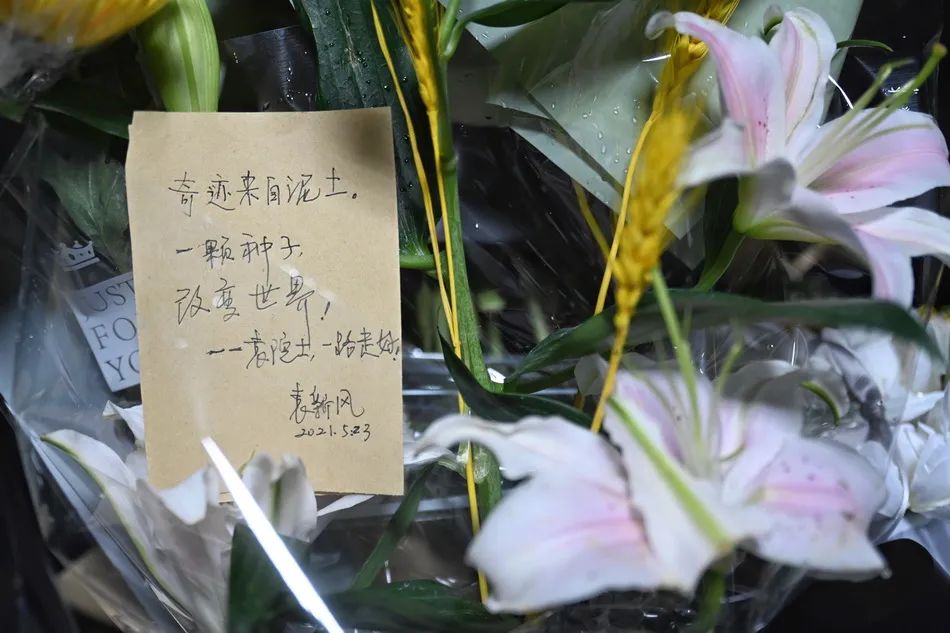 奇迹来自泥土。
一颗种子
改变世界!
——袁院士,一路走好
袁新风
2021.5.23
UST
FO
YO